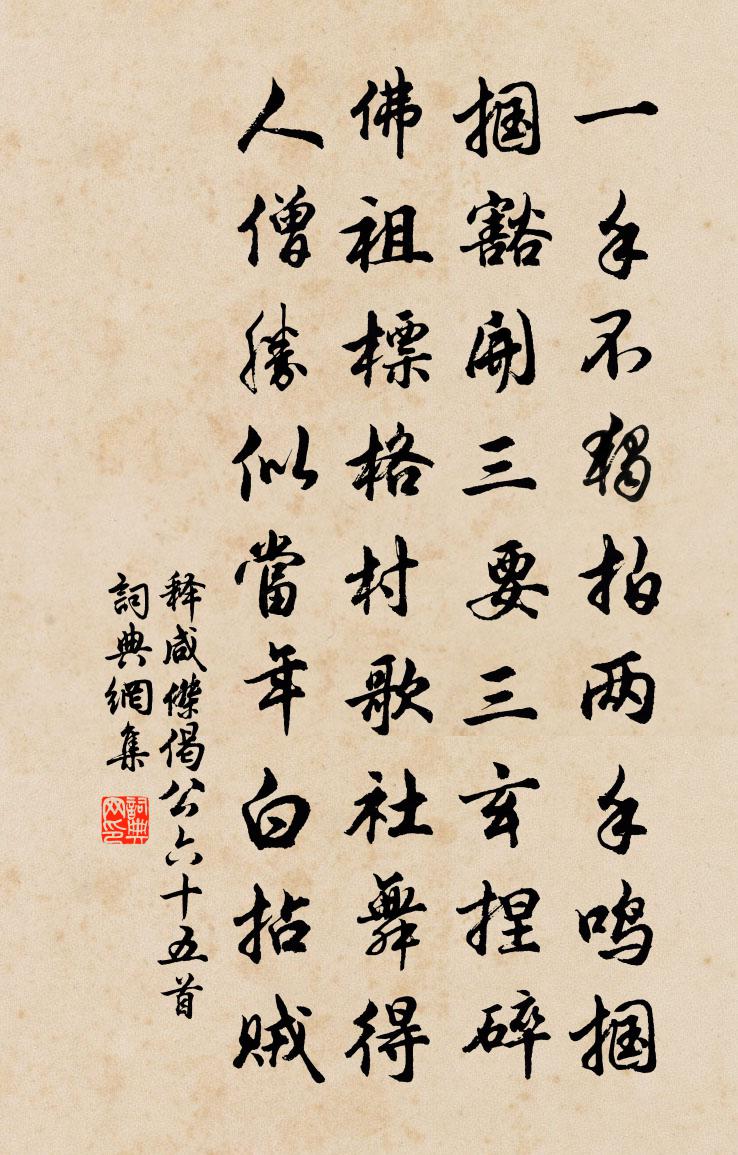 一手不獨拍两手鳴掴
掴豁開三要三玄捏碎
佛祖標格村歌社舞得
人僧勝似當年白拈賊
释咸傑偈公六十五首
詞典網集
詞典网印